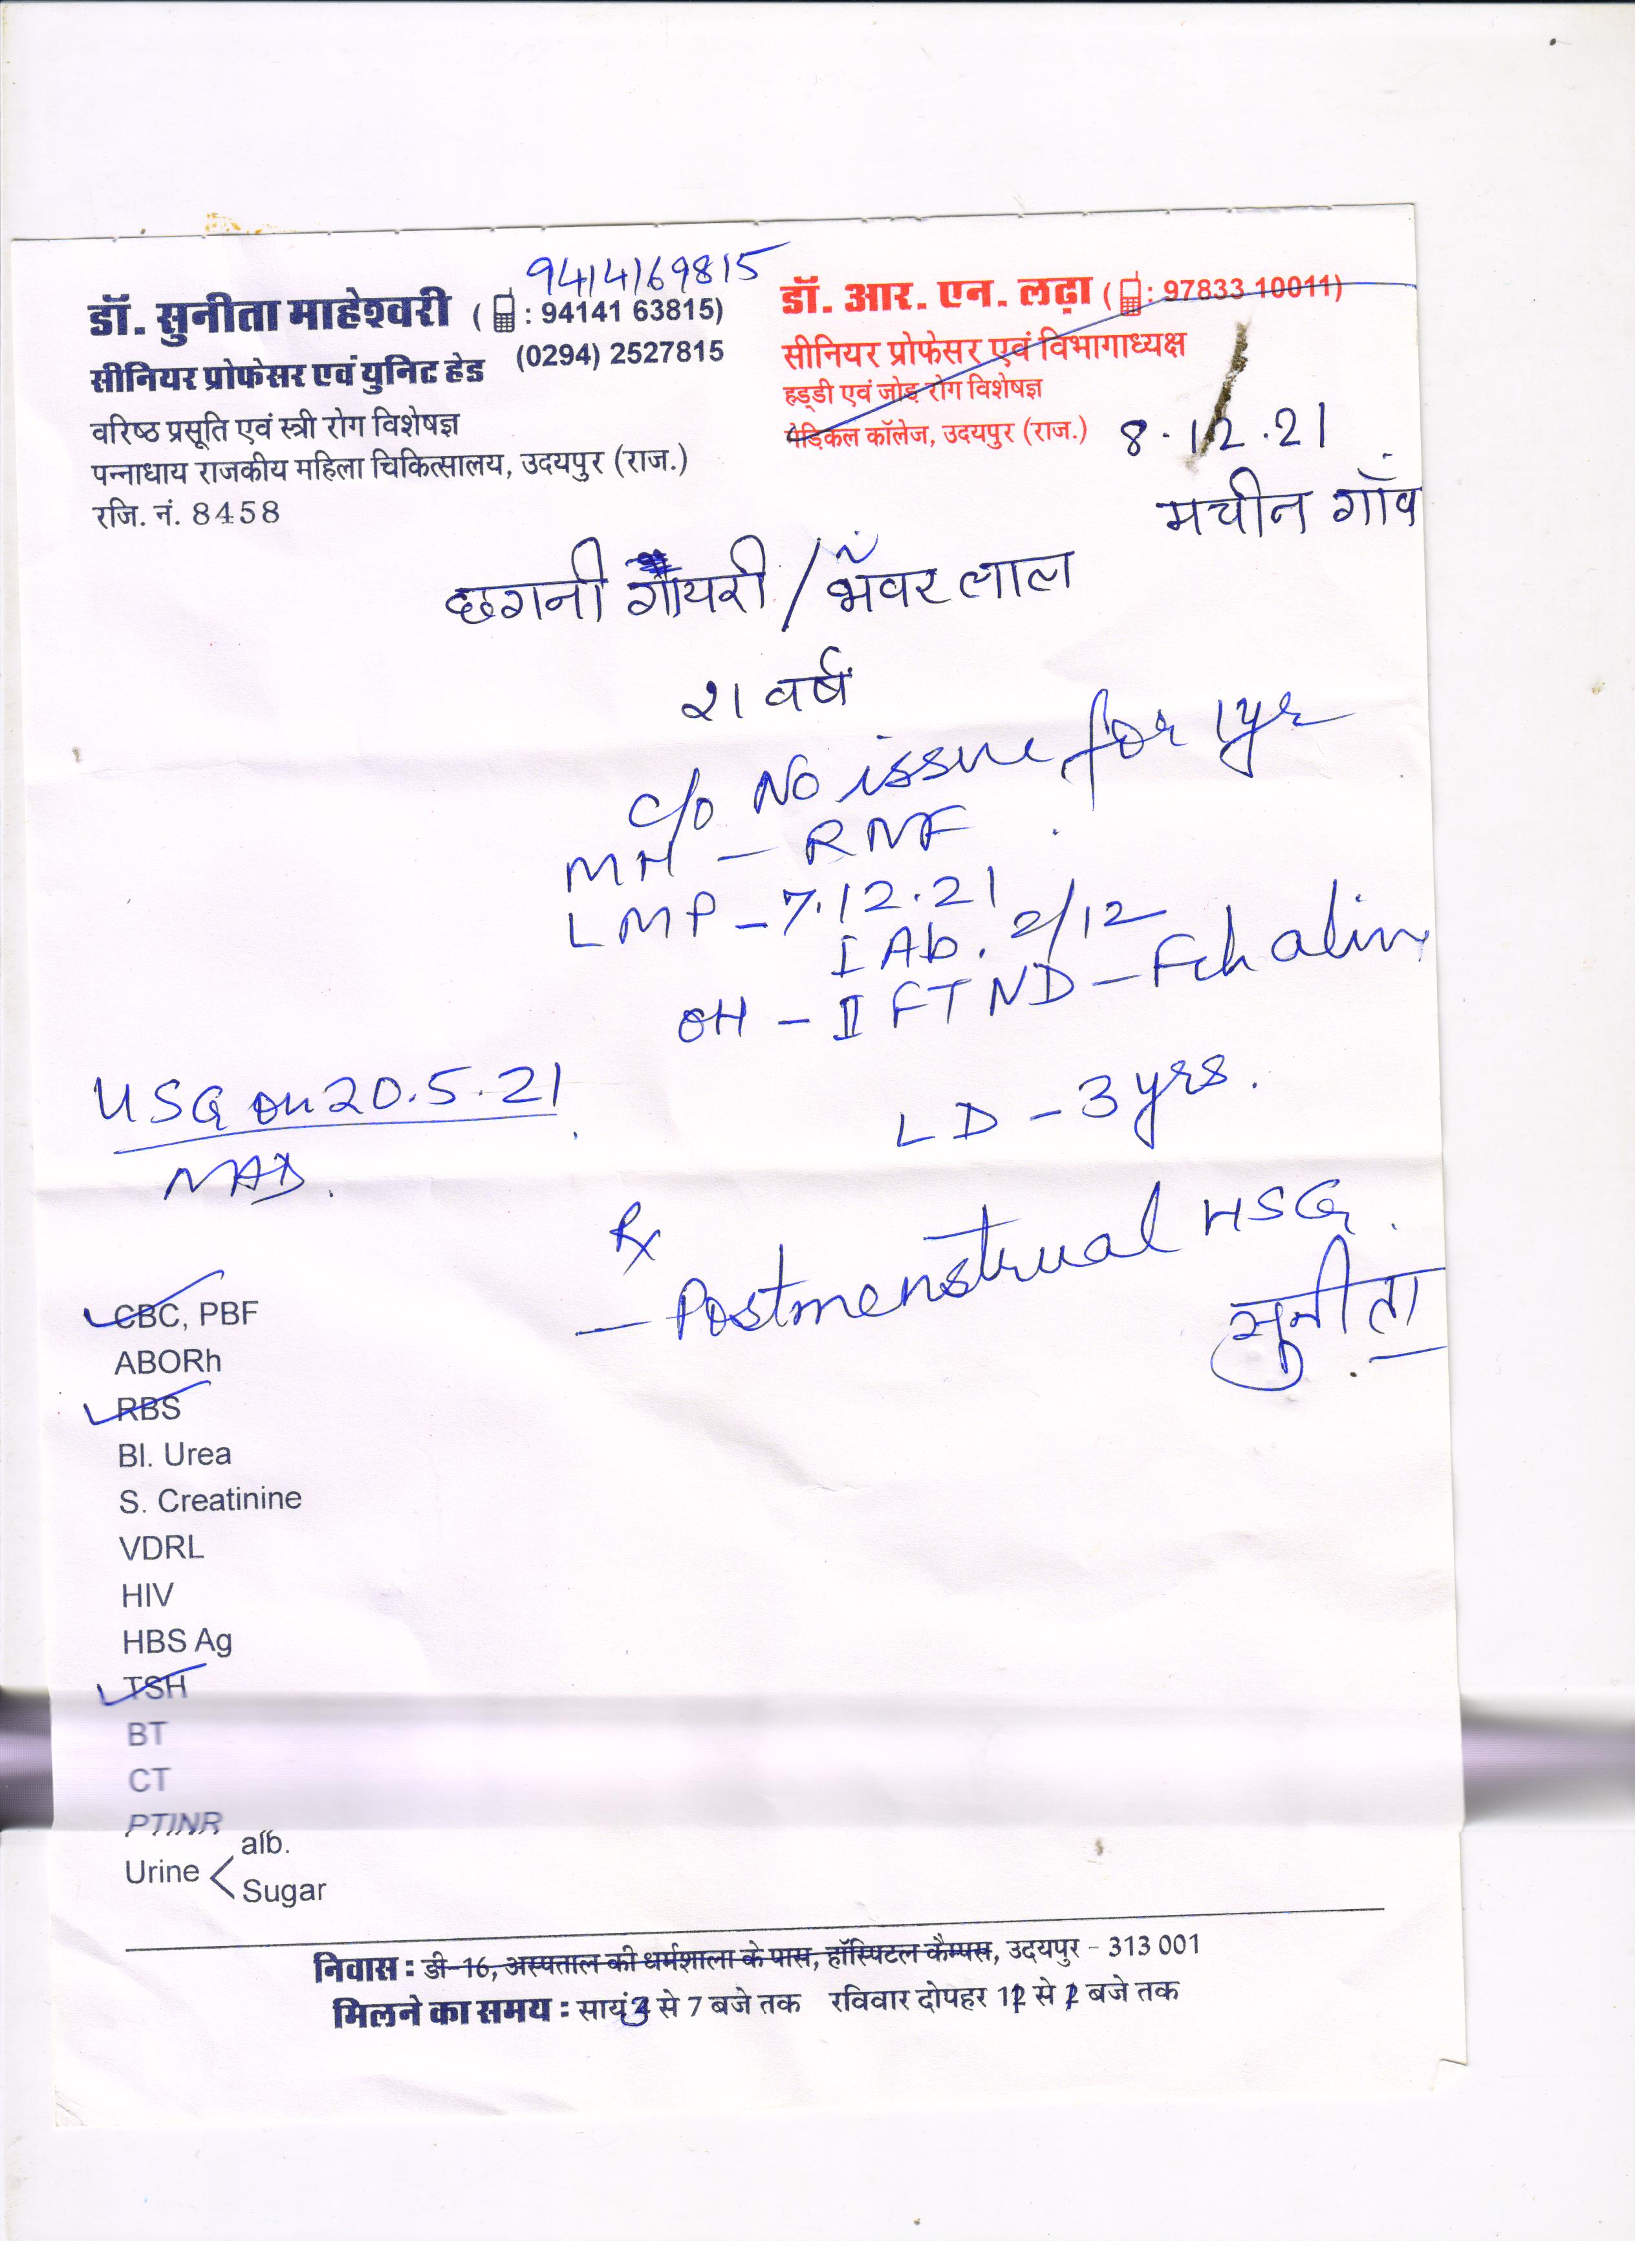 9414169815
डॉ. सुनीता माहेश्वरी ( : 94141 63815)
(0294) 2527815
सीनियर प्रोफेसर एवं युनिट हेड
वरिष्ठ प्रसूति एवं स्त्री रोग विशेषज्ञ
पन्नाधाय राजकीय महिला चिकित्सालय, उदयपुर (राज.)
रजि. नं. 8458
डॉ. आर. एन. लढ़ा ( : 97833 10011)
सीनियर प्रोफेसर एवं विभागाध्यक्ष
हड्डी एवं जोड़ रोग विशेषज्ञ
मेड़िकल कॉलेज, उदयपुर (राज.)
8.12.21
मचीन गाँव
छगनी गायरी / भँवर लाल
२१ वर्ष
c/o No issue for 1yr
MH - RNF
LMP - 7.12.21
I Ab. 2/12
OH - II FTND - Fch alive
LD - 3 yrs.
USG on 20.5.21
NAD.
Rx
- Postmenstrual HSG.
सुनीता
CBC, PBF
ABORh
RBS
Bl. Urea
S. Creatinine
VDRL
HIV
HBS Ag
TSH
BT
CT
PTINR
Urine < alb.
Sugar
निवास : डी-16, अस्पताल की धर्मशाला के पास, हॉस्पिटल कैम्पस, उदयपुर - 313 001
मिलने का समय : सायं 3 से 7 बजे तक रविवार दोपहर से बजे तक